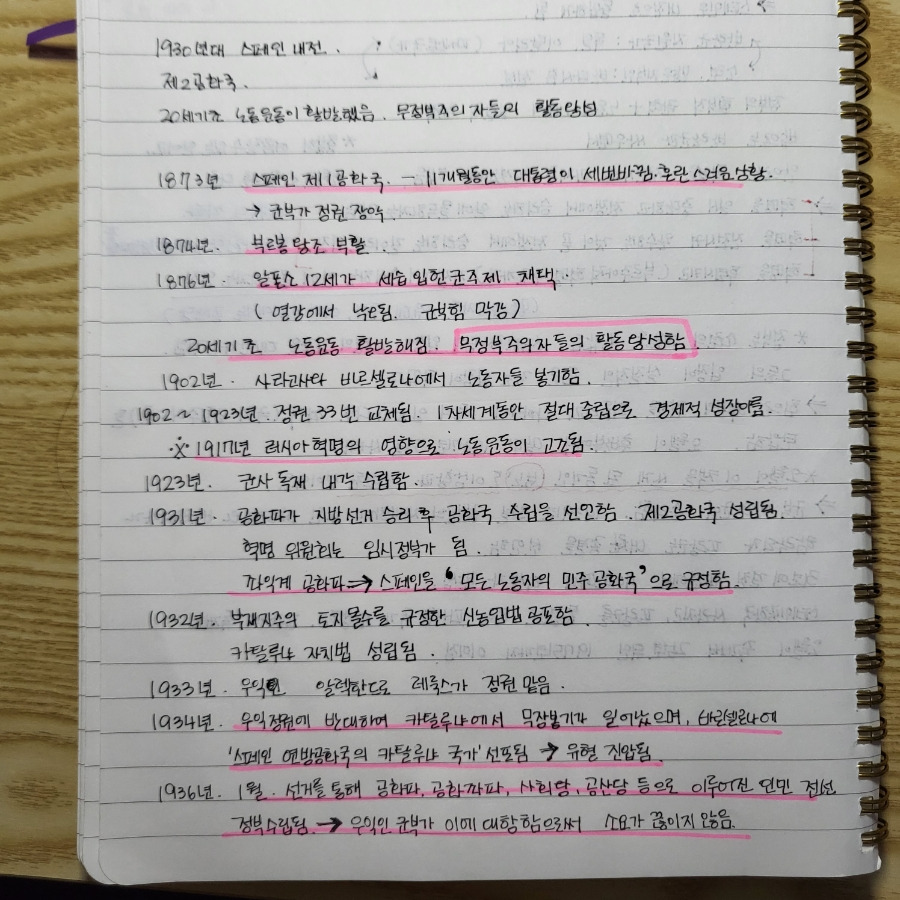 1930년대 스페인 내전.
제2공화국.
20세기초 노동운동이 활발했음. 무정부주의자들의 활동왕성
1873년 스페인 제1공화국. — 11개월동안 대통령이 세번바뀜. 혼란스러운 상황.
→ 군부가 정권 장악.
1874년. 부르봉 왕조 부활
1876년. 알폰소 12세가 세습 입헌 군주제 채택.
( 열강에서 낙오됨. 국력 막강 )
20세기 초 노동운동 활발해짐. 무정부주의자들의 활동 왕성함.
1902년. 사라고사와 바르셀로나에서 노동자들 봉기함.
1902 ~ 1923년. 정권 33번 교체됨. 1차세계동안 절대 중립으로 경제적 성장이룸.
※ 1917년 러시아 혁명의 영향으로 노동운동이 고조됨.
1923년. 군사 독재 내각 수립함.
1931년. 공화파가 지방선거 승리 후 공화국 수립을 선언함. 제2공화국 성립됨.
혁명 위원회는 임시정부가 됨.
좌익계 공화파 ⇒ 스페인을 '모든 노동자의 민주 공화국'으로 규정함.
1932년. 부재지주의 토지몰수를 규정한 신농업법 공포함.
카탈루냐 자치법 성립됨.
1933년. 우익 알렉한드로 레룩스가 정권 맡음.
1934년. 우익정권에 반대하여 카탈루냐에서 무장봉기가 일어났으며, 바르셀로나에
'스페인 연방공화국의 카탈루냐 국가' 선포됨 → 유혈 진압됨.
1936년. 1월. 선거를 통해 공화파, 공화좌파, 사회당, 공산당 등으로 이루어진 인민 전선
정부수립됨. → 우익인 군부가 이에 대항함으로써 소요가 끊이지 않음.